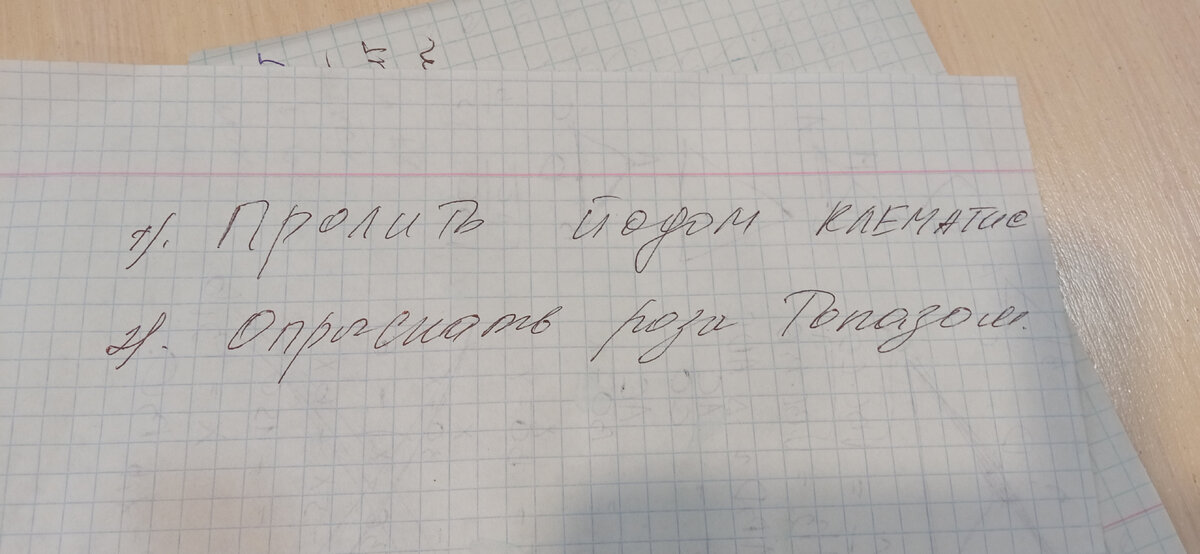 1). Пролить йодом клематис
2). Опрыскать розы Топазом.